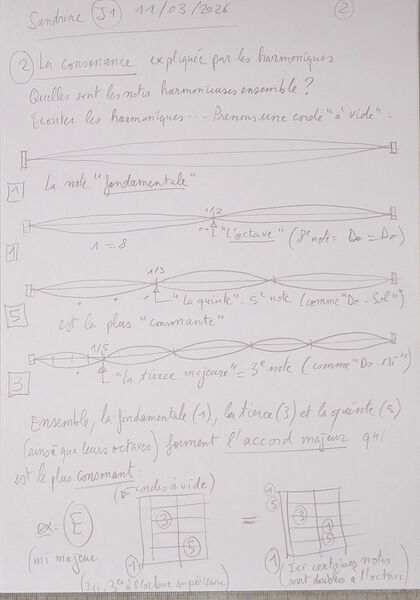 Sandrine J1 11/03/2026 2
2 La consonance expliquée par les harmoniques
Quelles sont les notes harmonieuses ensemble ?
Ecouter les harmoniques --- Prenons une corde "à vide" :
1 La note "fondamentale"
1/2
"L'octave" (8e note = Do = Do)
1 1 = 8
1/3
"La quinte" = 5e note (comme "Do - Sol")
5 est la plus "consonante"
1/5
3 "La tierce majeure" = 3e note (comme "Do-Mi")
Ensemble, la fondamentale (1), la tierce (3) et la quinte (5)
(ainsi que leurs octaves) forment l'accord majeur qui
est le plus consonant :
(cordes à vide)
ex : E 3 5 = 1 5 3 1 5
(mi majeur 1 1 (Ici certaines notes
(Ici, 3ce à l'octave supérieure) sont doublées à l'octave)